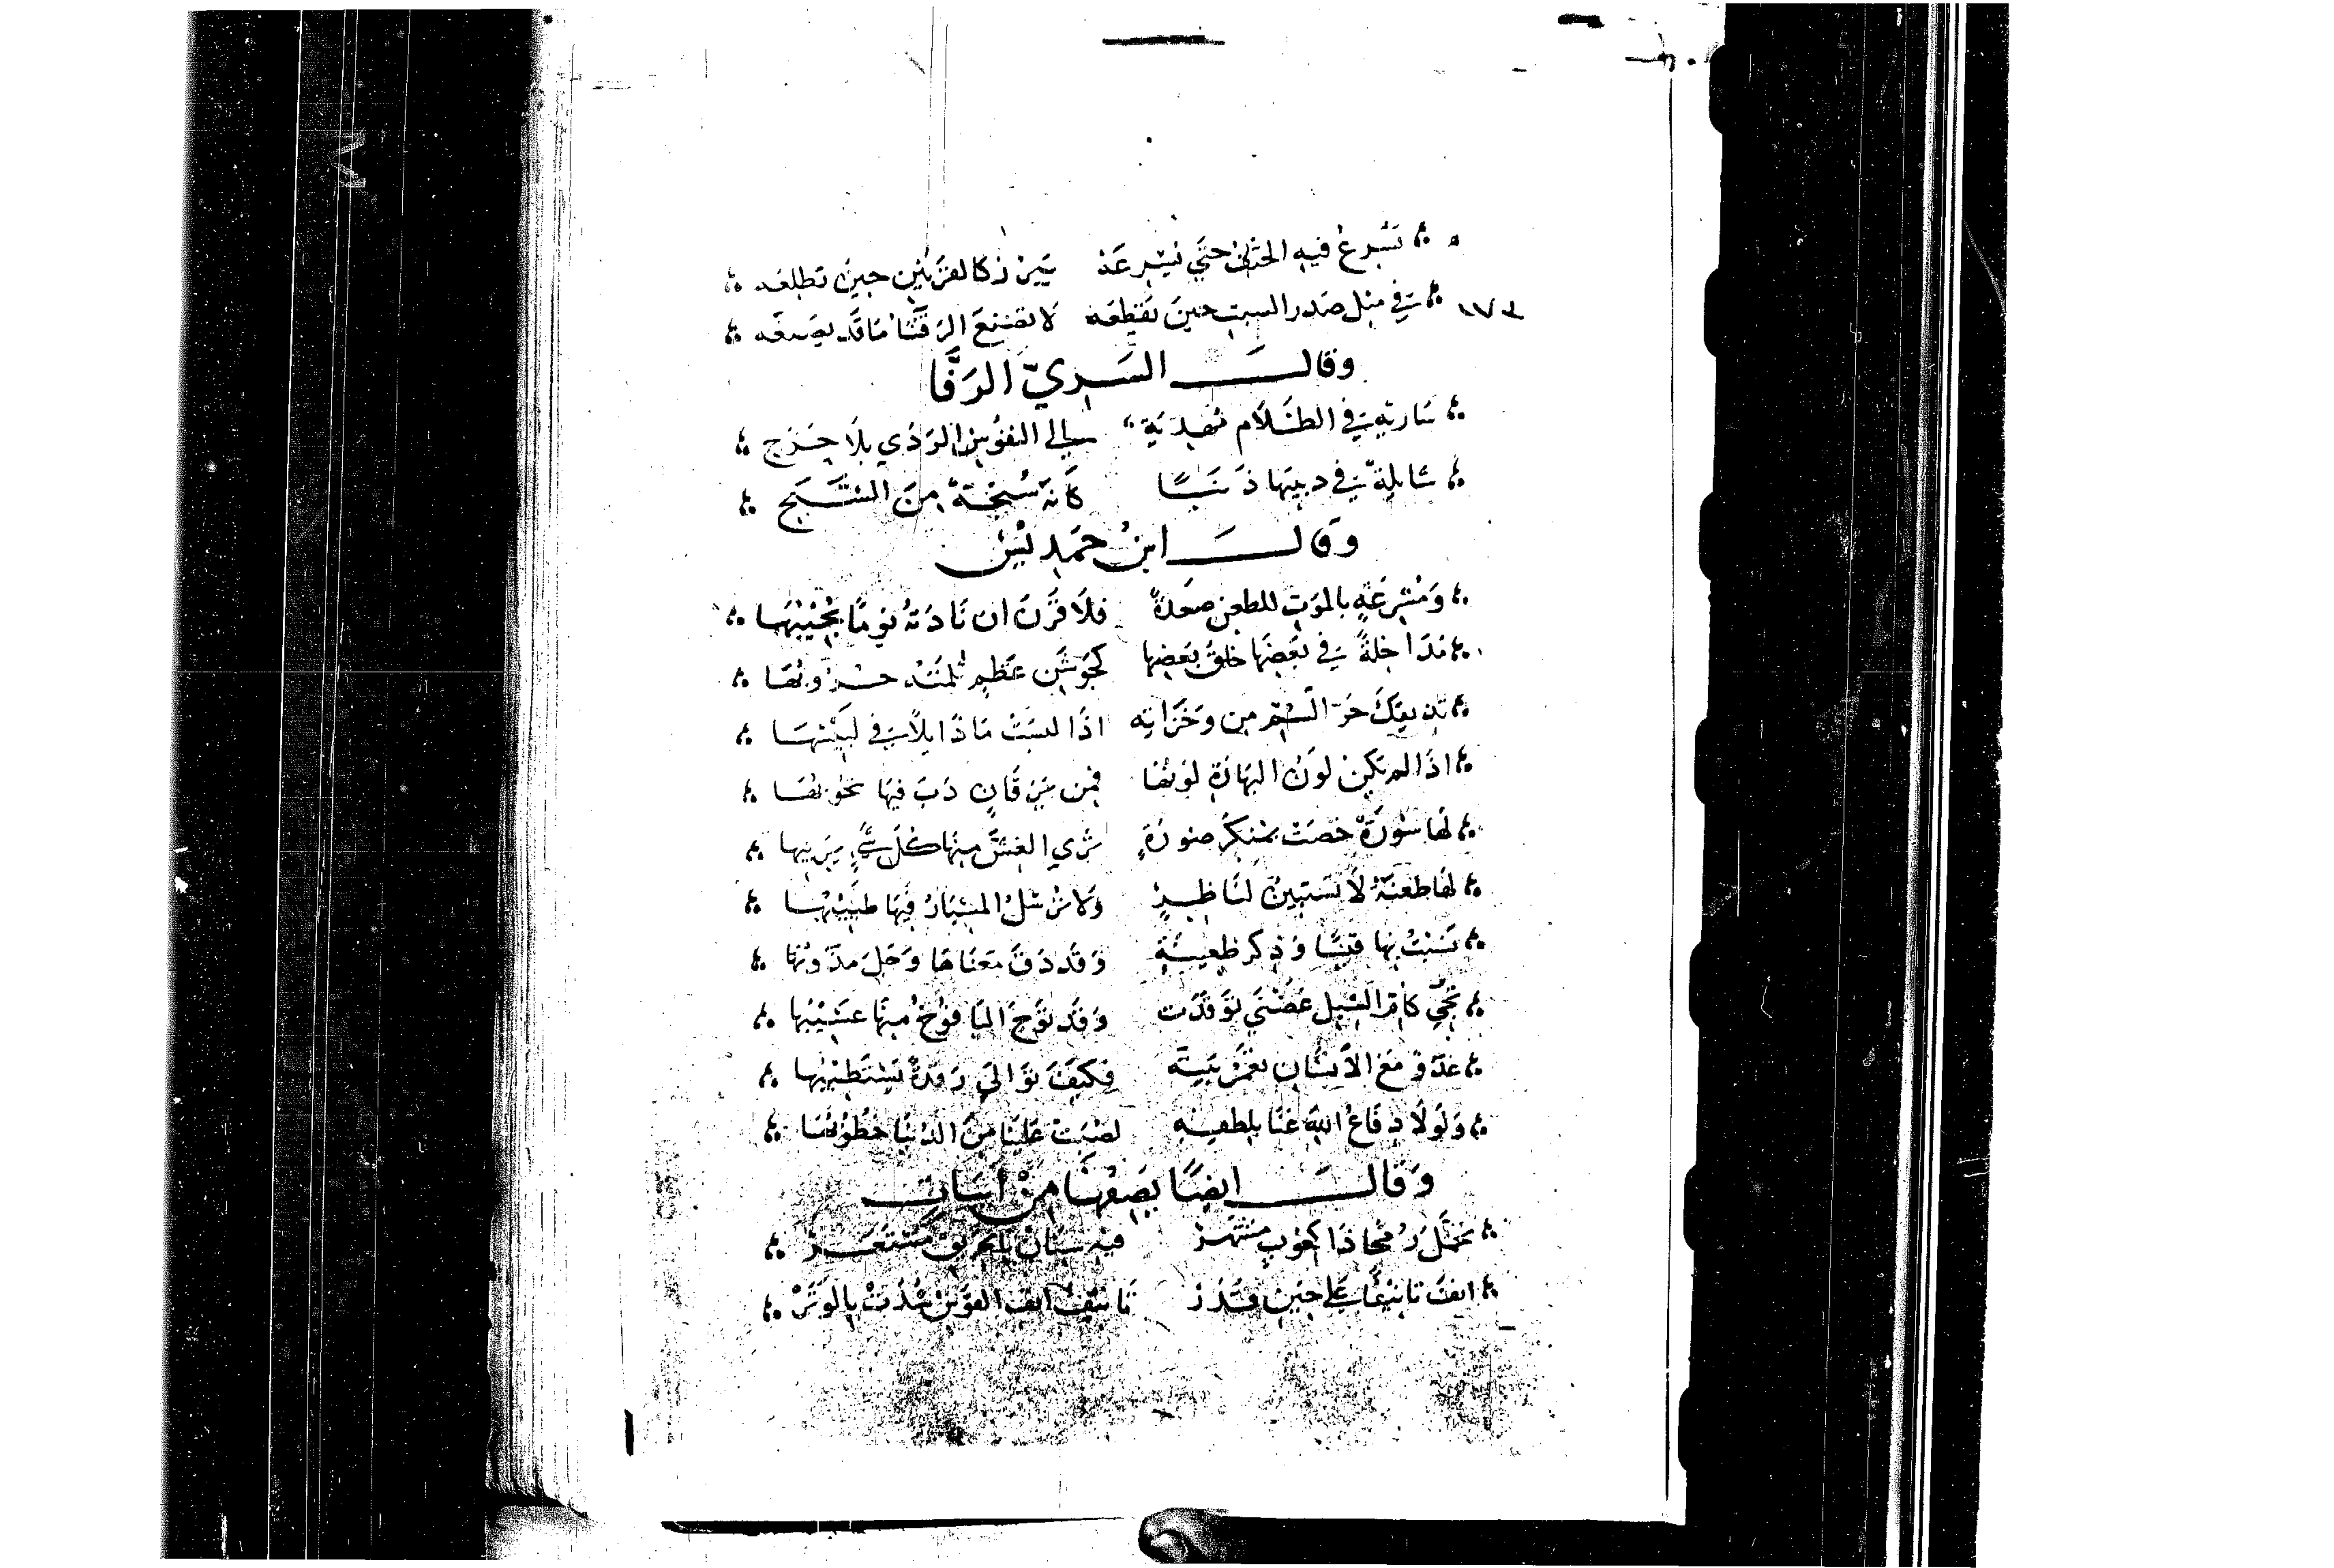 تشرع فيه الحتف حتى تشرعه بين زكا لعز بين حين تطلعه
في مثل صدر السبت حين تقطعه لا تصنع الرقشا ما قد يصنعه
١٧٣
وقال السري الرفا
سارية في الظلام مهدية الى النفوس الردي بلا حرج
شايلة في دنبها ذنبا كانه سبحة من السبج
وقال ابن حمديس
ومشرعة بالموت للطعن صعدة فلا قرن ان نادته يوما يجيبها
مداخلة في بعضها خلق بعضها كجوشن عظم ثلمته حروبها
تذيقك حر السم من وخز ابرة اذا لسبت ماذا يلاقي لسيبها
اذا لم يكن لون البهارة لونها فمن يرقان دب فيها شحوبها
لها سورة خصت بمنكر صورة ترى العين منها كل شي يريبها
لها طعنة لا تستبين لناظر ولا يرسل المسبار فيها طبيبها
نسيت بها قيسا وذكر طعينه وقد دق معناها وجل
تجي كام الشبل غضبى توقدت وقد توج اليافوخ منها عسيبها
عدو مع الانسان يعمر بيته فكيف توالي رقدة يستطيبها
ولولا دفاع الله عنا بلطفه لصبت علينا من الدنيا خطوبها
وقال ايضا يصفها من ابيات
تحمل رمحا ذا كعوب مشتهر فيه سنان بالحريق مستعر
انف تانيفا على حين قدر تانيف انف القوس شدت بالوتر